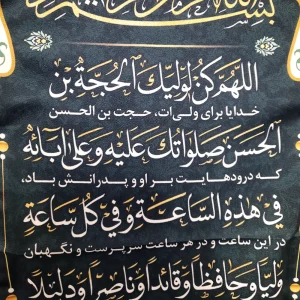 بسم
اللهم كن لوليك الحجة بن
خدایا برای ولی‌ات، حجت بن الحسن
الحسن صلواتك عليه وعلى آبائه
که درودهایت بر او و پدرانش باد،
في هذه الساعة وفي كل ساعة
در این ساعت و در هر ساعت سرپرست و نگهبان
وليا وحافظا وقائدا وناصرا ودليلا